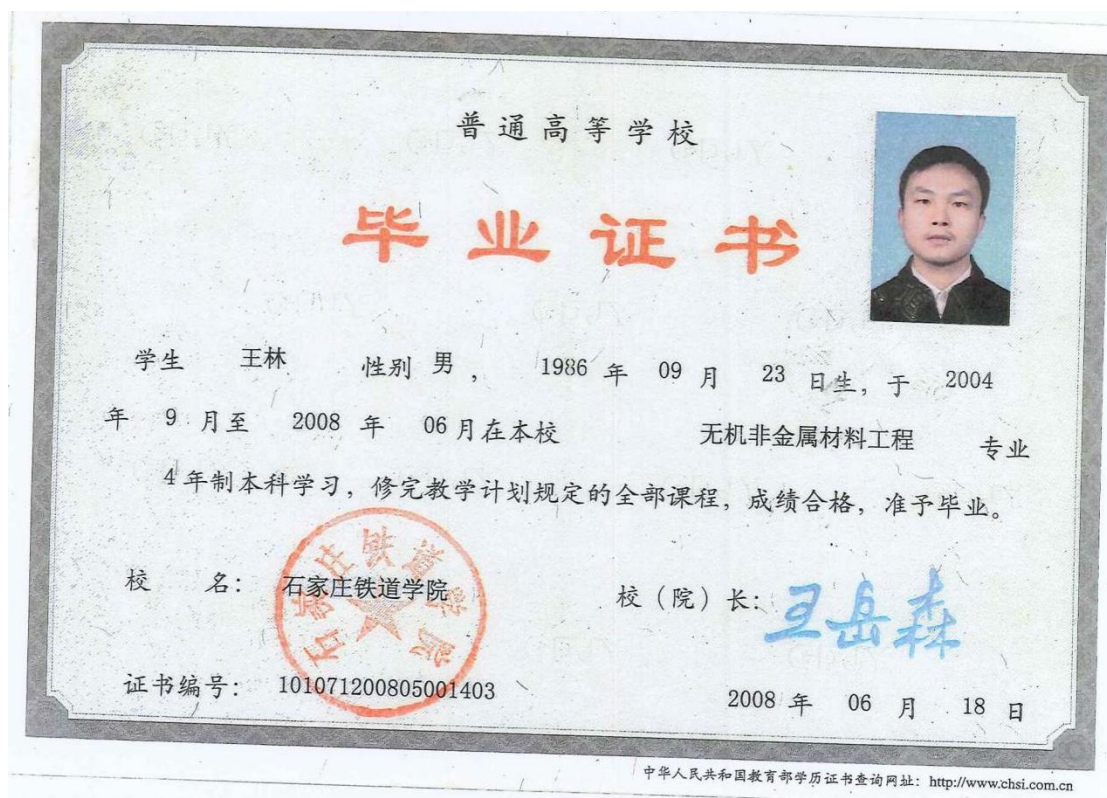 普通高等学校
毕业证书
学生 王林 性别 男 ， 1986 年 09 月 23 日生，于 2004
年 9 月至 2008 年 06 月在本校 无机非金属材料工程 专业
4 年制本科学习，修完教学计划规定的全部课程，成绩合格，准予毕业。
校 名： 石家庄铁道学院 校（院）长： 王岳森
石家庄铁道学院
证书编号： 101071200805001403 2008 年 06 月 18 日
中华人民共和国教育部学历证书查询网址：http://www.chsi.com.cn